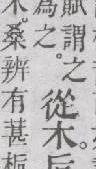 賦謂之從木。
爲之。
木。桑辨有葚梔